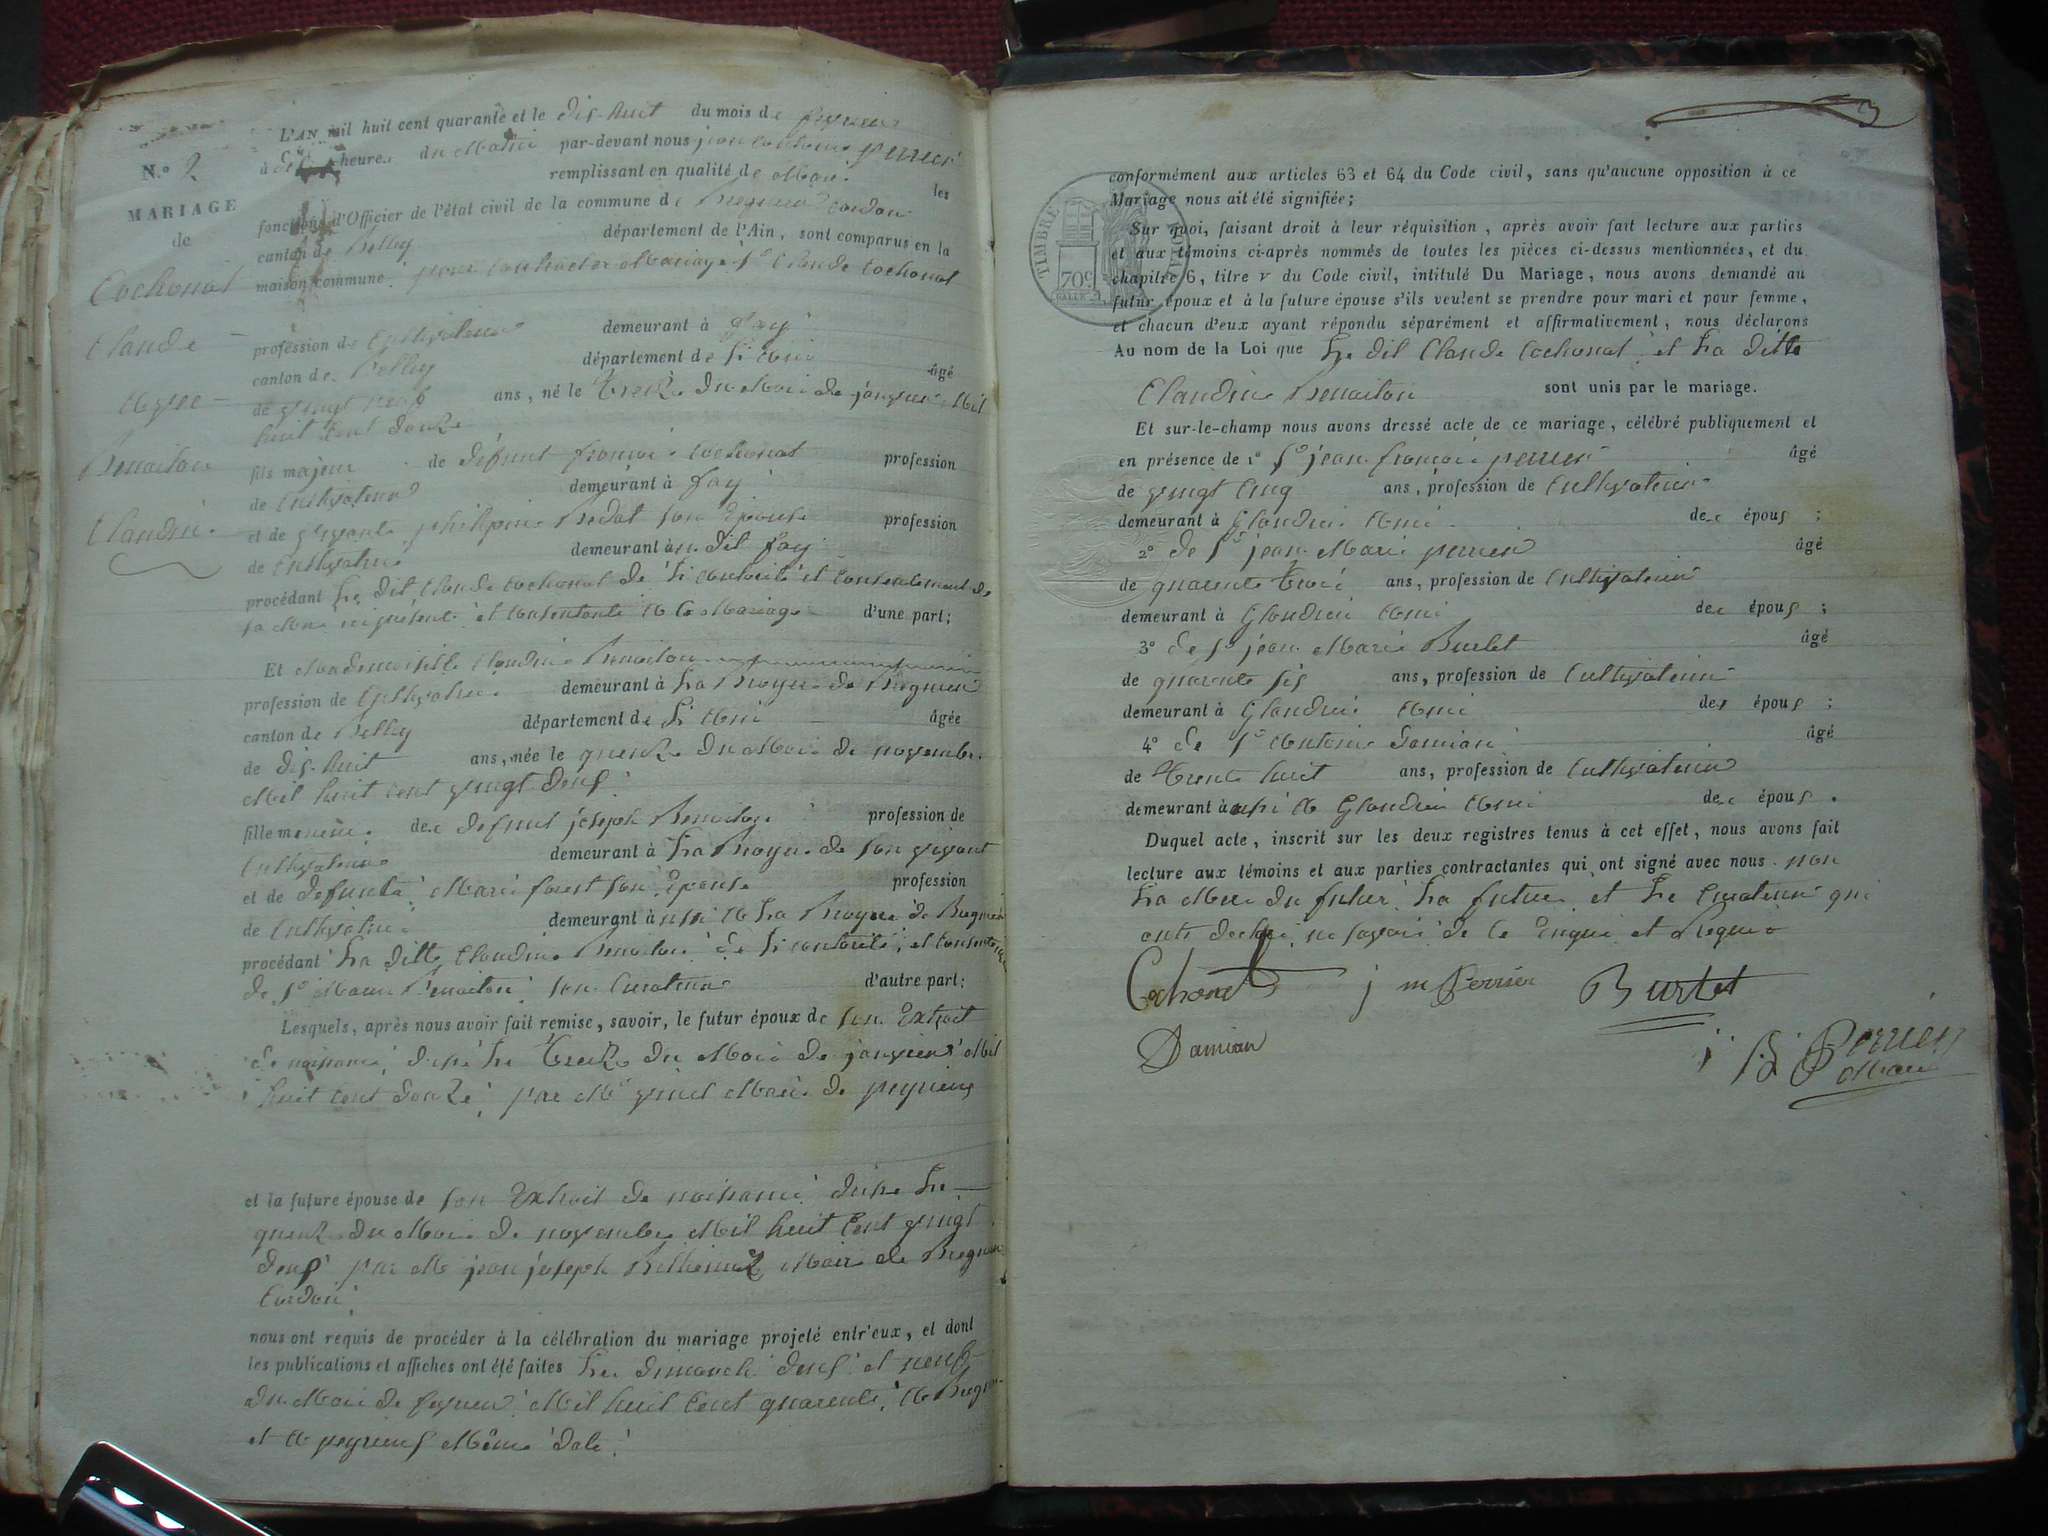 N.o 2
MARIAGE
de
Cochonat
Claude
avec
Benoiton
Claudine
L'AN mil huit cent quarante et le dix-huit du mois de fevrier
à heures du Matin par-devant nous jean perrier
remplissant en qualité de Maire les
fonctions d'Officier de l'état civil de la commune de Bregnier Cordon
canton de Belley département de l'Ain, sont comparus en la
maison commune, pour contracter Mariage Sr Claude Cochonat
profession de Cultivateur demeurant à fay
canton de Belley département de L'Ain âgé
de vingt neuf ans, né le treize du Mois de janvier Mil
huit cent douze
fils majeur de défunt françois Cochonat profession
de Cultivateur demeurant à fay
et de vivante philipine Bedat son Epouse profession
de Cultivatrice demeurant au dit fay
procédant Le dit Claude Cochonat de L'autorité et Consentement de
sa Mere ici présente et Consentente à Ce Mariage d'une part;
Et Mademoiselle Claudine Benoiton
profession de Cultivatrice demeurant à La Bruyere de Bregnier
canton de Belley département de L'Ain âgée
de dix-huit ans, née le quinze du Mois de novembre
Mil huit cent vingt deux
fille mineure de defunt joseph Benoiton profession de
Cultivateur demeurant à La Bruyere de son vivant
et de defunte Marie forest son Epouse profession
de Cultivatrice demeurant à La Bruyere de Bregnier
procédant La ditte Claudine Benoiton de L'autorité, et Consentement
de Sr Benoiton son Curateur d'autre part;
Lesquels, après nous avoir fait remise, savoir, le futur époux de son Extrait
de naissance, du Treize du Mois de janvier Mil
huit cent douze, par Mr Maire de peyrieux
et la future épouse de son Extrait de naissance du
quinze du Mois de novembre Mil huit Cent vingt
deux par Mr jean joseph Maire de Bregnier
Cordon
nous ont requis de procéder à la célébration du mariage projeté entr'eux, et dont
les publications et affiches ont été faites Les dimanche deux et neuf
du Mois de fevrier Mil huit Cent quarente, à Bregnier
et à peyrieux Même date
conformément aux articles 63 et 64 du Code civil, sans qu'aucune opposition à ce
Mariage nous ait été signifiée;
TIMBRE ROYAL
70c
Sur quoi, faisant droit à leur réquisition, après avoir fait lecture aux parties
et aux témoins ci-après nommés de toutes les pièces ci-dessus mentionnées, et du
chapitre 6, titre v du Code civil, intitulé Du Mariage, nous avons demandé au
futur époux et à la future épouse s'ils veulent se prendre pour mari et pour femme,
et chacun d'eux ayant répondu séparément et affirmativement, nous déclarons
Au nom de la Loi que Le dit Claude Cochonat et La ditte
Claudine Benoiton sont unis par le mariage.
Et sur-le-champ nous avons dressé acte de ce mariage, célébré publiquement et
en présence de 1o Sr jean françois perrier âgé
de vingt Cinq ans, profession de Cultivateur
demeurant à Glandieu Ami des époux ;
2o de Sr jean Marie perrier âgé
de quarente trois ans, profession de Cultivateur
demeurant à Glandieu Ami des époux ;
3o de Sr jean Marie Burlet âgé
de quarente six ans, profession de Cultivateur
demeurant à Glandieu Ami des époux ;
4o de Sr Antoine Damian âgé
de Trente huit ans, profession de Cultivateur
demeurant à Glandieu Ami des époux .
Duquel acte, inscrit sur les deux registres tenus à cet effet, nous avons fait
lecture aux témoins et aux parties contractantes qui ont signé avec nous non
La Mere du futur, La future et Le Curateur qui
ont déclaré ne savoir de Ce Enquis et Requis
Cochonat j m Perrier Burlet
Damian
Perrier
Maire